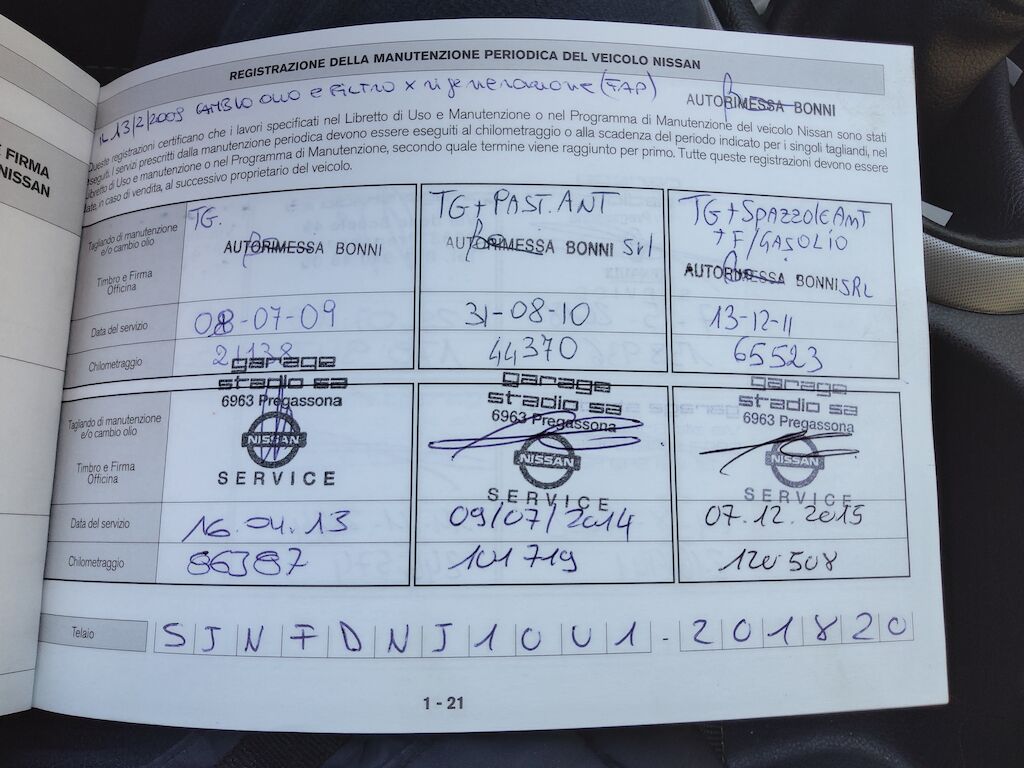 E FIRMA
NISSAN
REGISTRAZIONE DELLA MANUTENZIONE PERIODICA DEL VEICOLO NISSAN
IL 13/2/2009 CAMBIO OLIO e FILTRO x rigenerazione (FAP)
AUTORIMESSA BONNI
Queste registrazioni certificano che i lavori specificati nel Libretto di Uso e Manutenzione o nel Programma di Manutenzione del veicolo Nissan sono stati
eseguiti. I servizi prescritti dalla manutenzione periodica devono essere eseguiti al chilometraggio o alla scadenza del periodo indicato per i singoli tagliandi, nel
Libretto di Uso e manutenzione o nel Programma di Manutenzione, secondo quale termine viene raggiunto per primo. Tutte queste registrazioni devono essere
date, in caso di vendita, al successivo proprietario del veicolo.
Tagliando di manutenzione
e/o cambio olio
TG.
TG + PAST. ANT
TG + SPAZZOLE ANT
+ F/GASOLIO
Timbro e Firma
Officina
AUTORIMESSA BONNI
AUTORIMESSA BONNI Srl
AUTORIMESSA BONNI SRL
Data del servizio
08-07-09
31-08-10
13-12-11
Chilometraggio
21138
44370
65523
Tagliando di manutenzione
e/o cambio olio
Timbro e Firma
Officina
garage
stadio sa
6963 Pregassona
NISSAN
SERVICE
garage
stadio sa
6963 Pregassona
NISSAN
SERVICE
garage
stadio sa
6963 Pregassona
NISSAN
SERVICE
Data del servizio
16.04.13
09/07/2014
07.12.2015
Chilometraggio
86387
101719
120508
Telaio
SJNFDNJ10U1-201820
1 - 21